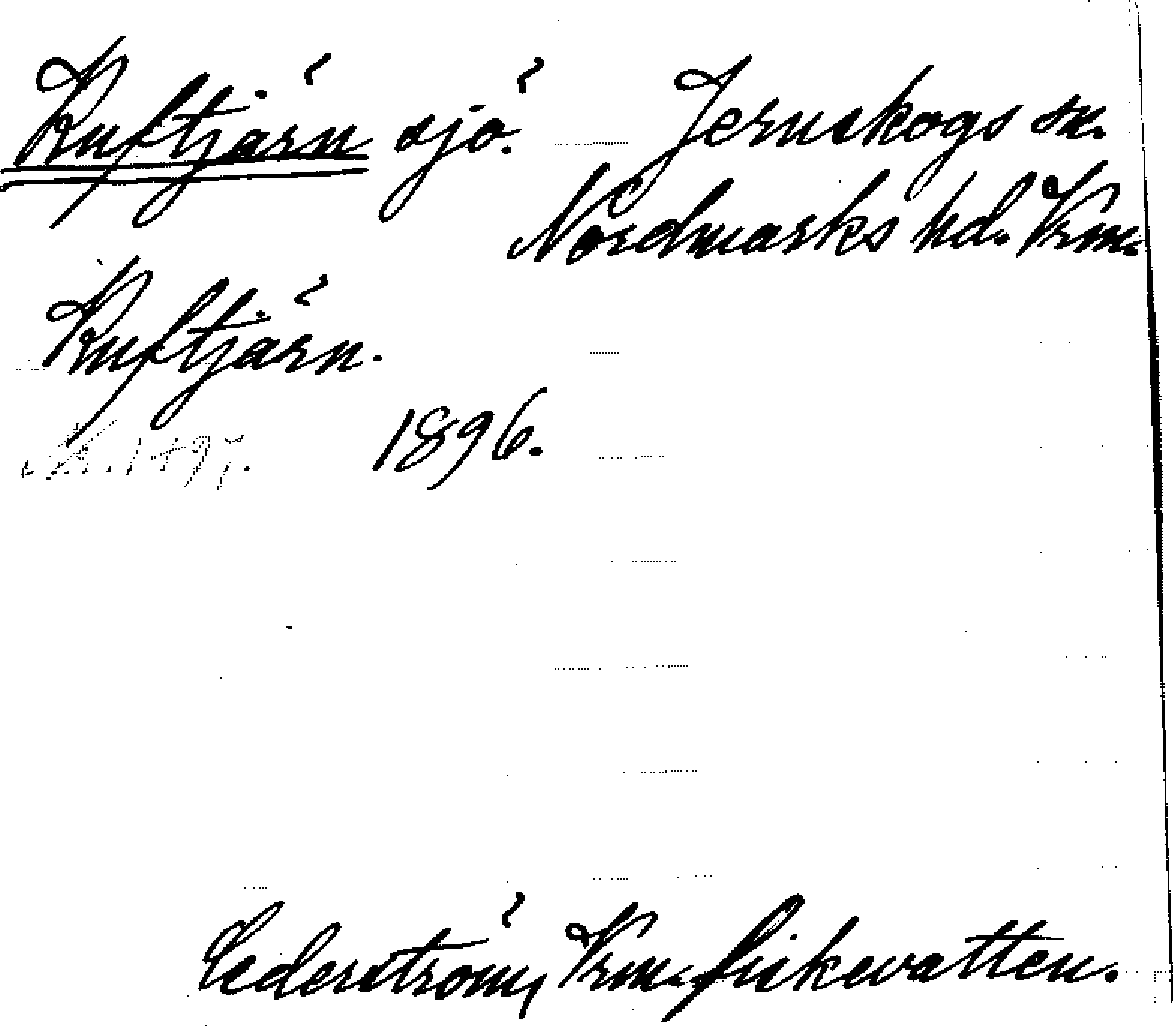 Kuftjärn sjö. Jernskogs sn.
Nordmarks hd. Vrm.
Kuftjärn.
1896.
Cederström, Vrm. fiskevatten.